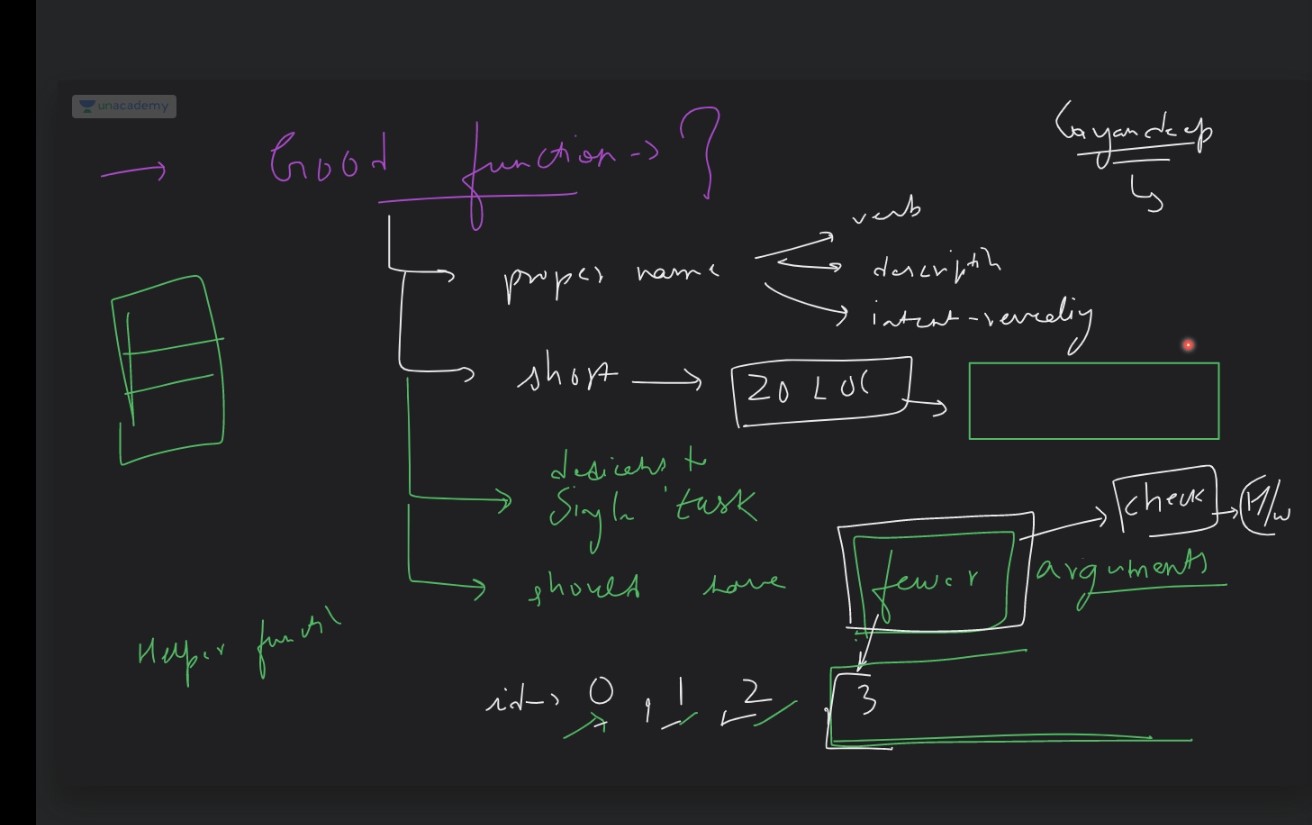 unacademy
Gayandeep
→ Good function → ?
proper name
verb
descriptn
intent-revealing
short → 20 LOC →
dedicates to
Single task
should have fewer arguments
check → H/w
Helper functn
→ 0 , 1 , 2 3